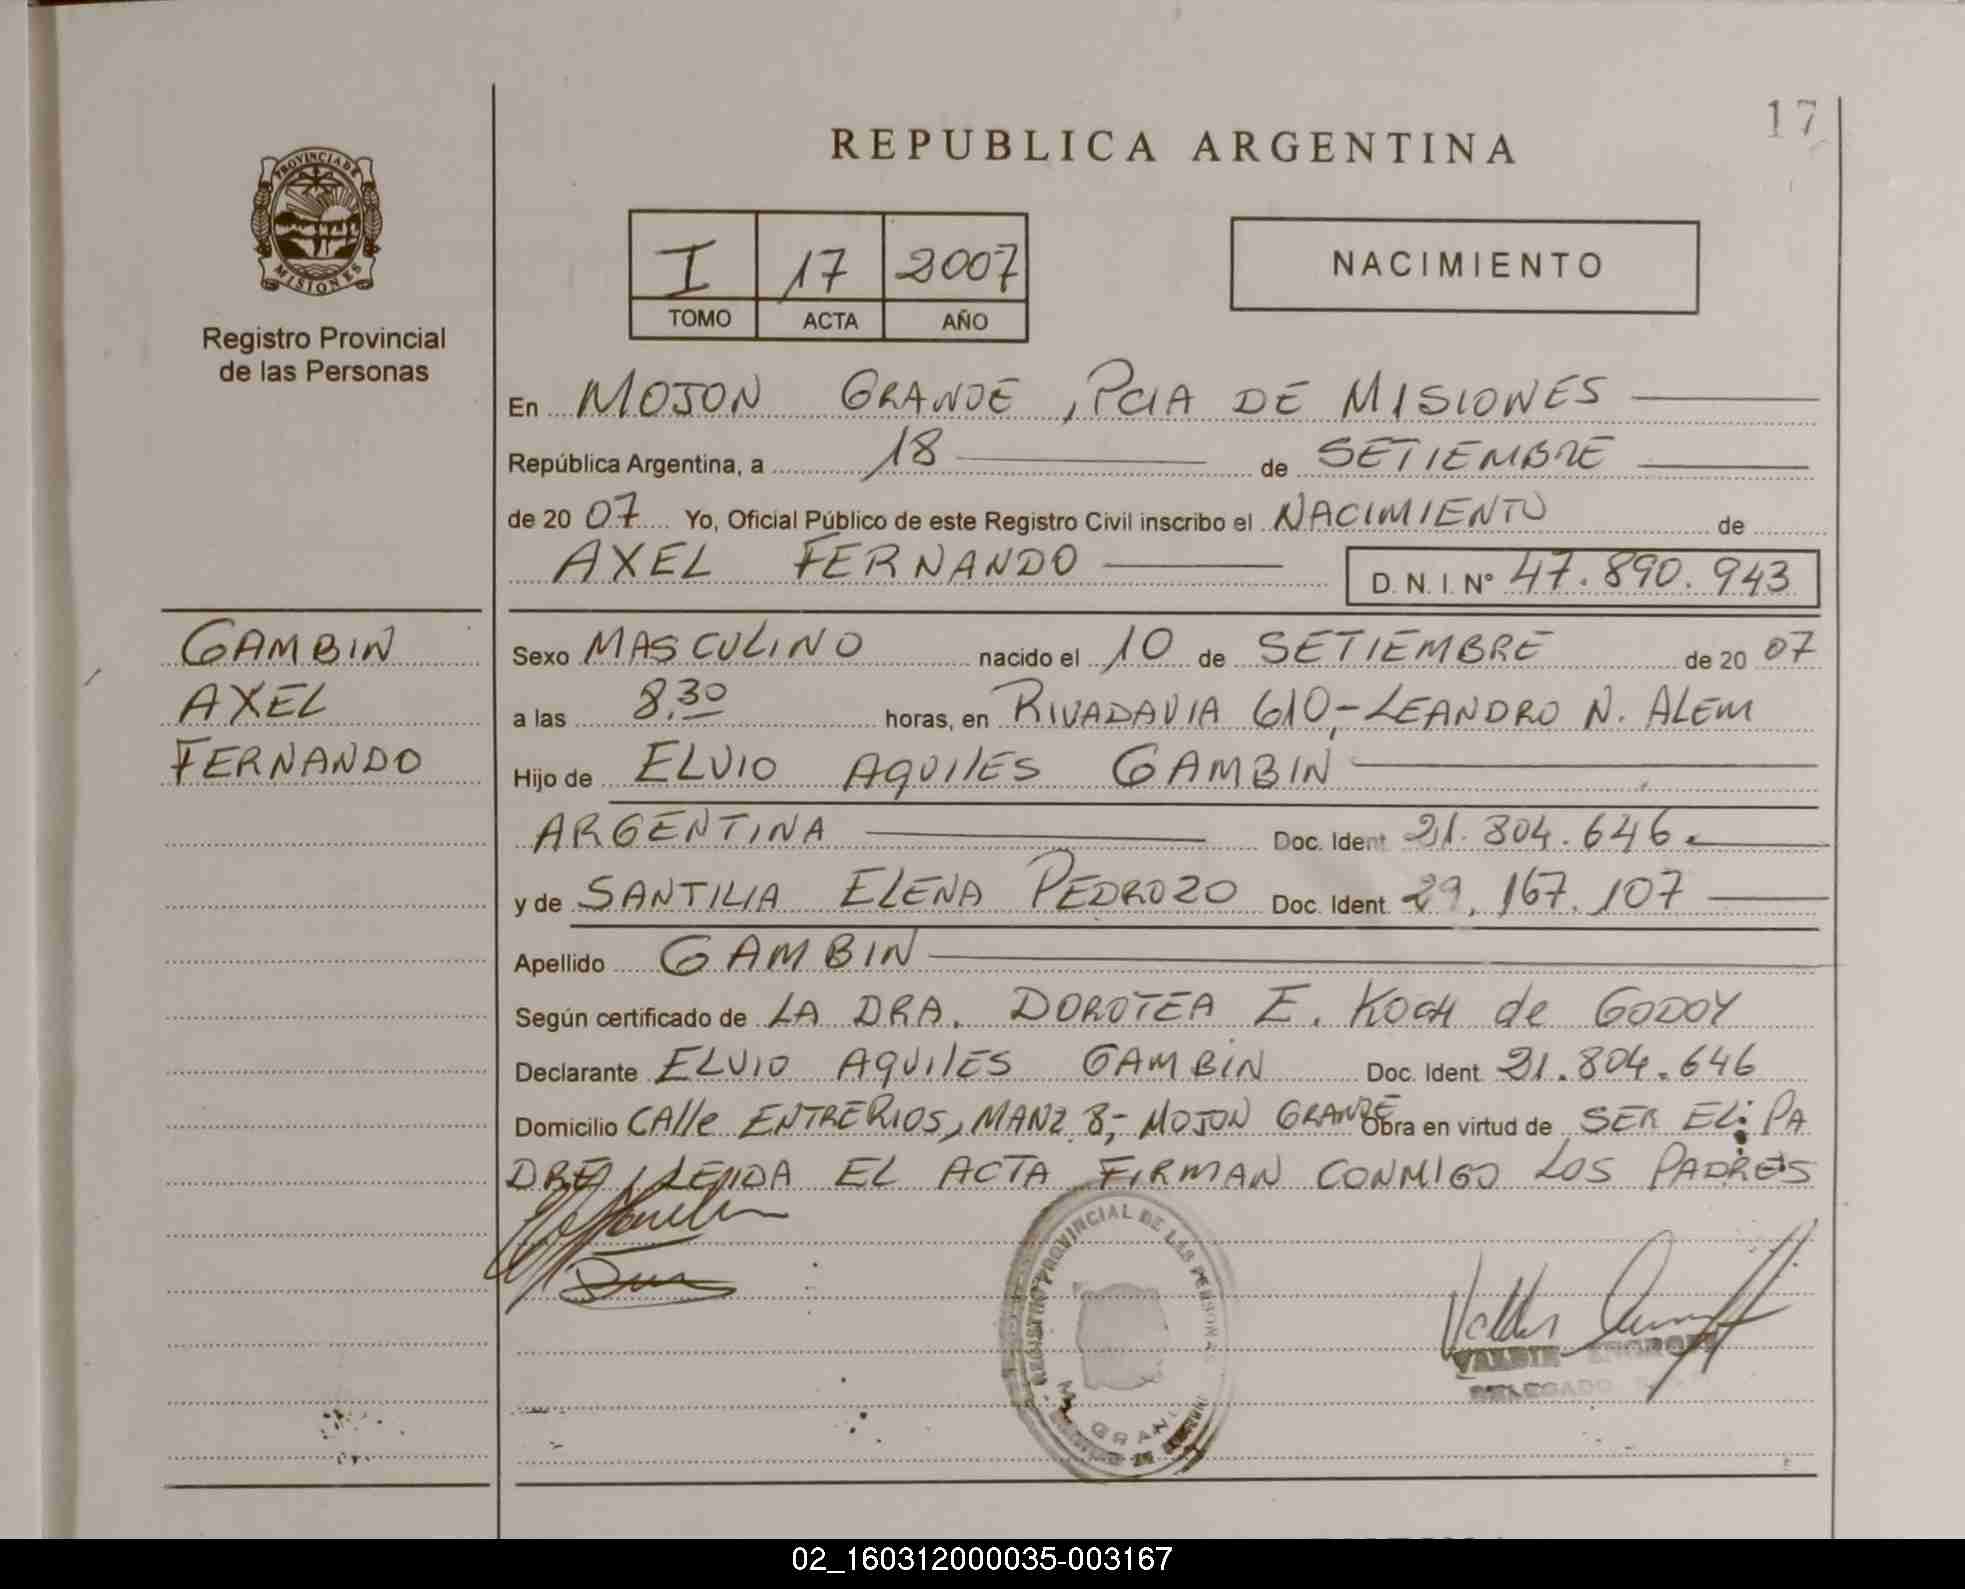 17
REPUBLICA ARGENTINA
PROVINCIA DE
MISIONES
Registro Provincial
de las Personas
I 17 2007
TOMO ACTA AÑO
NACIMIENTO
En MOJON GRANDE, PCIA DE MISIONES
República Argentina, a 18 de SETIEMBRE
de 20 07 Yo, Oficial Público de este Registro Civil inscribo el NACIMIENTO de
AXEL FERNANDO D. N. I. N° 47.890.943
GAMBIN
AXEL
FERNANDO
Sexo MASCULINO nacido el 10 de SETIEMBRE de 20 07
a las 8,30 horas, en RIVADAVIA 610,-LEANDRO N. ALEM
Hijo de ELVIO AQUILES GAMBIN
ARGENTINA Doc. Ident 21.804.646.
y de SANTILIA ELENA PEDROZO Doc. Ident. 29.167.107
Apellido GAMBIN
Según certificado de LA DRA. DOROTEA E. KOCH de GODOY
Declarante ELVIO AQUILES GAMBIN Doc. Ident. 21.804.646
Domicilio CAlle ENTRERIOS, MANZ 8,- MOJON GRANDE Obra en virtud de SER EL PA
DRE, LEIDA EL ACTA FIRMAN CONMIGO LOS PADRES
REGISTRO PROVINCIAL DE LAS PERSONAS
DELEGADO
02_160312000035-003167